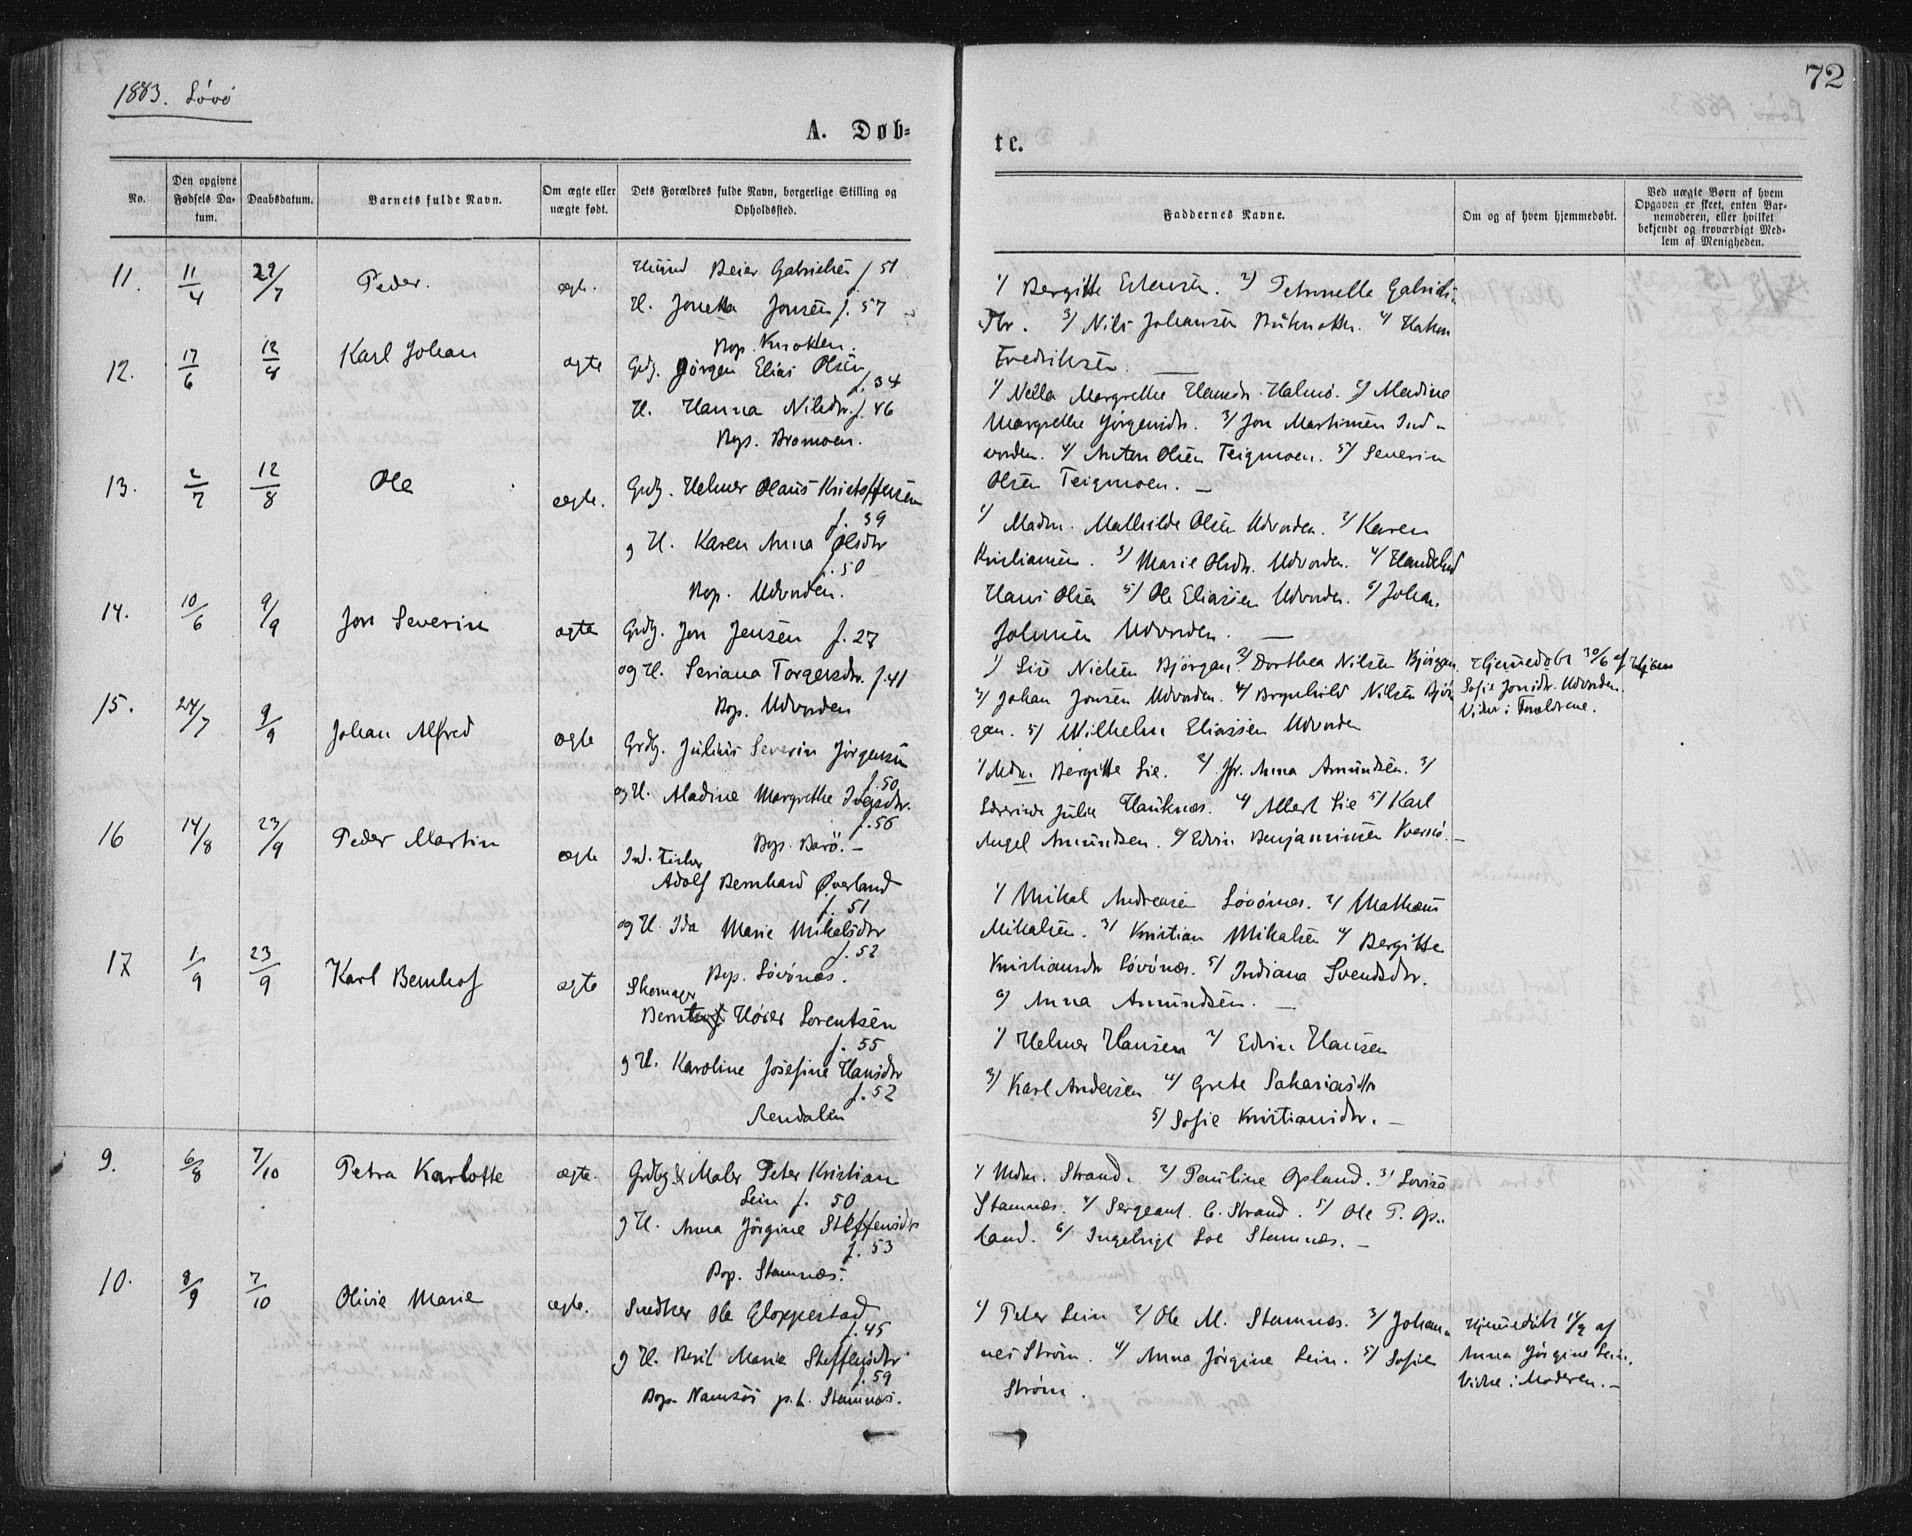 1883. Lóvó
72
A. Døb=
te.
No.
Den opgivne Fødsels Da-
tum.
Daabsdatum.
Barnets fulde Navn.
Om ægte eller
uægte født.
Dets Forældres fulde Navn, borgerlige Stilling og
Opholdssted.
Faddernes Navne.
Om og af hvem hjemmedøbt.
Ved uægte Børn af hvem
Opgaven er skeet, enten Bar-
nemoderen, eller hvilket
bekjendt og troværdigt Med-
lem af Menigheden.
11. 11/4 29/7 Peder. ægte.
Beier Gabrielsen f. 51
H. Jonetta Jonsen f. 57
Bop. Knotten.
1/ Bergitte 2/ Petronella Gabriels
dtr. 3/ Nils Johansen 4/ Hakon
Fredriksen. —
12. 17/6 12/8 Karl Johan ægte
Grdb. Jörgen Elias Olsen
f. 34
H. Hanna Nilsdtr. f. 46
Bop. Bromoen.
1/ Nella Margrethe Halmö. 2/ Madine
Margrethe Jörgensdtr. 3/ Jon Martinsen Ind-
vorden. 4/ Anton Olsen Teigmoen. 5/ Severin
Olsen Teigmoen. —
13. 2/7 12/8 Ole ægte.
Grdb. Helmer Olaus Kristoffersen
f. 39
og H. Karen Anna Olsdtr
f. 50
Bop. Udvorden.
1/ Madm. Mathilde Olsen Udvorden. 2/ Karen
Kristiansen. 3/ Marie Olsdtr. Udvorden. 4/ Handelsbd
Hans Olsen 5/ Ole Eliassen Udvorden. 6/ Johan
Johnsen Udvorden. —
14. 10/6 9/9 Jon Severin ægte
Grdb. Jon Jensen f. 27
og H. Seriana Torgersdtr. f. 41
Bop. Udvorden
1/ Lise Nielsen Björgan 2/ Dorthea Nilsen Björgan
3/ Johan Jonsen Udvorden. 4/ Brynhild Nilsen Björ
gan. 5/ Wilhelm Eliassen Udvorden
Hjemmedöbt 30/6 af
Sofie Jonsdtr. Udvorden.
Vidner: Forældrene.
15. 24/7 9/9 Johan Alfred ægte
Grdb. Julius Severin Jörgensen
f. 50
og H. Madine Margrethe
f. 56
Bop. Barö. —
1/ Mdm. Bergitte Lie. 2/ Jfr. Anna Amundsen. 3/
Julie Hauknæs. 4/ Albert Lie 5/ Karl
Angel Amundsen. 6/ Edvin Benjaminsen Kvernö. —
16 14/8 23/9 Peder Martin ægte
Ind. Fisker
Adolf Bernhard Øverland
f. 51
og H. Ida Marie Mikalsdtr
f. 52
Bop. Lóvónæs.
1/ Mikal Andreasen Lóvónæs. 2/ Mathæus
Mikalsen. 3/ Kristian Mikalsen 4/ Bergitte
Kristiansdtr Lóvónæs. 5/ Indiana Svendsdtr.
6/ Anna Amundsen. —
17 1/9 23/9 Karl Bernhof ægte
Skomager
Høier Lorentsen
f. 55
og H. Karoline Josefine Hansdtr
f. 52
Rendalen
1/ Helmer Hansen 2/ Edvin Hansen
3/ Karl Andersen 4/ Grete Sakariasdtr
5/ Sofie Kristiansdtr. —
9. 6/8 7/10 Petra Karlotte ægte.
Grdbg & Maler Peter Kristian
Lein f. 50
og H. Anna Jörgine Steffensdtr
f. 53
Bop. Stamnæs.
1/ Mdm. Strand. 2/ Pauline Opland. 3/ Lovise
Stamnæs. 4/ Sergeant C. Strand. 5/ Ole P. Op-
land. 6/ Ingebrigt Loe Stamnæs. —
10. 8/9 7/10 Olivie Marie ægte.
Snedker Ole Gloppestad
f. 45
og H. Berit Marie Steffensdtr
f. 59
Bop. Namsös p.t. Stamnæs.
1/ Peter Lein 2/ Ole M. Stamnæs. 3/ Johan-
nes Ström. 4/ Anna Jörgine Lein. 5/ Sofie
Ström.
Hjemmedöbt af
Anna Jörgine Lein.
Vidne: Moderen. —